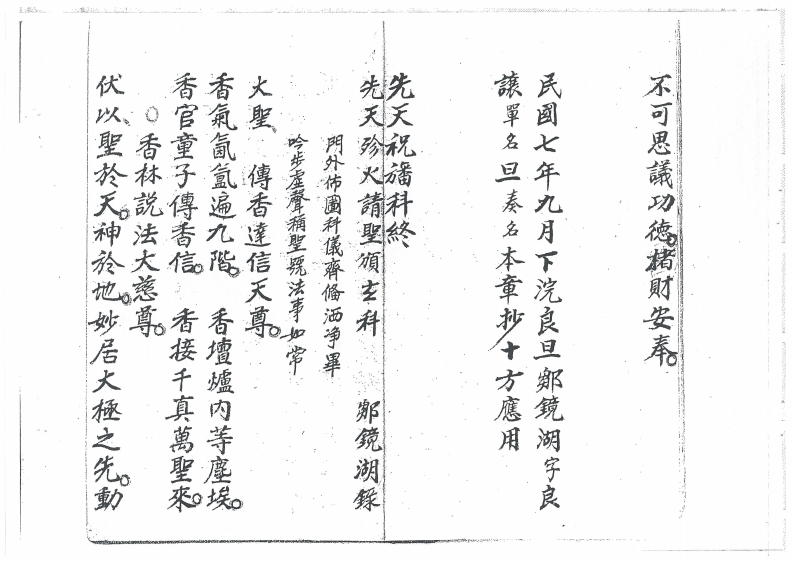 不可思議功德。楮財安奉。
民國七年九月下浣良旦鄒鏡湖字良
讓單名旦奏名本章抄十方應用
先天祝旛科終
先天殄火請聖頒赦科 鄒鏡湖錄
門外佈圖科儀齊俻洒净畢
吟步虛聲稱聖號法事如常
大聖 傳香達信天尊。
香氣氤氲遍九階。 香壇爐内等塵埃。
香官童子傳香信。 香接千真萬聖來。
○香林説法大慈尊。
伏以聖於天。神於地。妙居大極之先。動